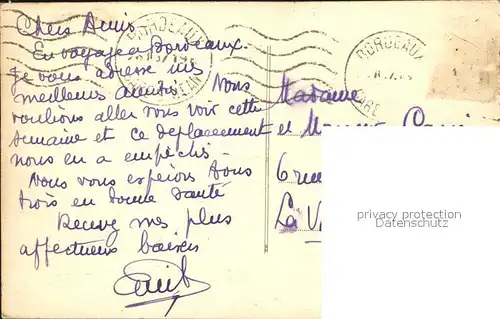 Chers Amis
En voyage a Bordeaux.
Je vous adresse mes
meilleurs amitiés. Nous
voulions aller vous voir cette
semaine et ce deplacement
nous en a empêchés.
Nous vous espérons tous
trois en bonne santé
Recevez mes plus
affectueux baisers
BORDEAUX
BORDEAUX
GARE
Madame
et
6 rue
La V
privacy protection
Datenschutz